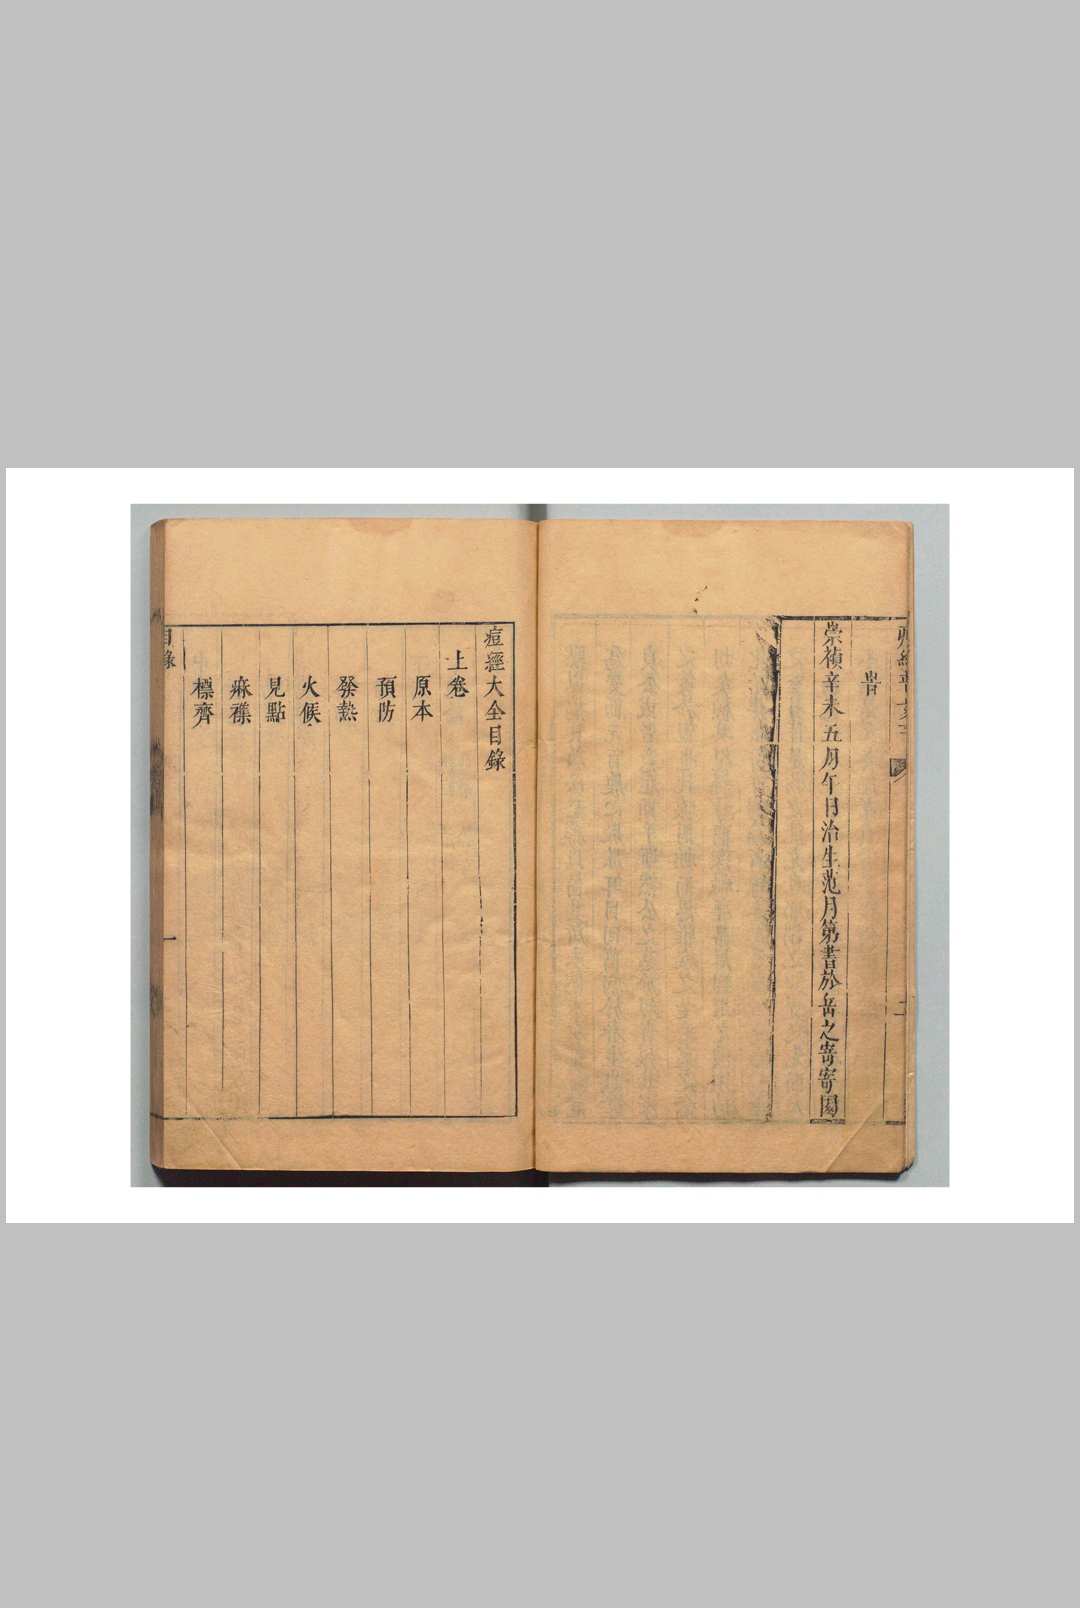 旹
崇禎辛未五月午日治生范月第書於岳之寄寄園
二
痘經大全目錄
上卷
原本
預防
發熱
火候
見點
麻襍
標齊
目錄
一